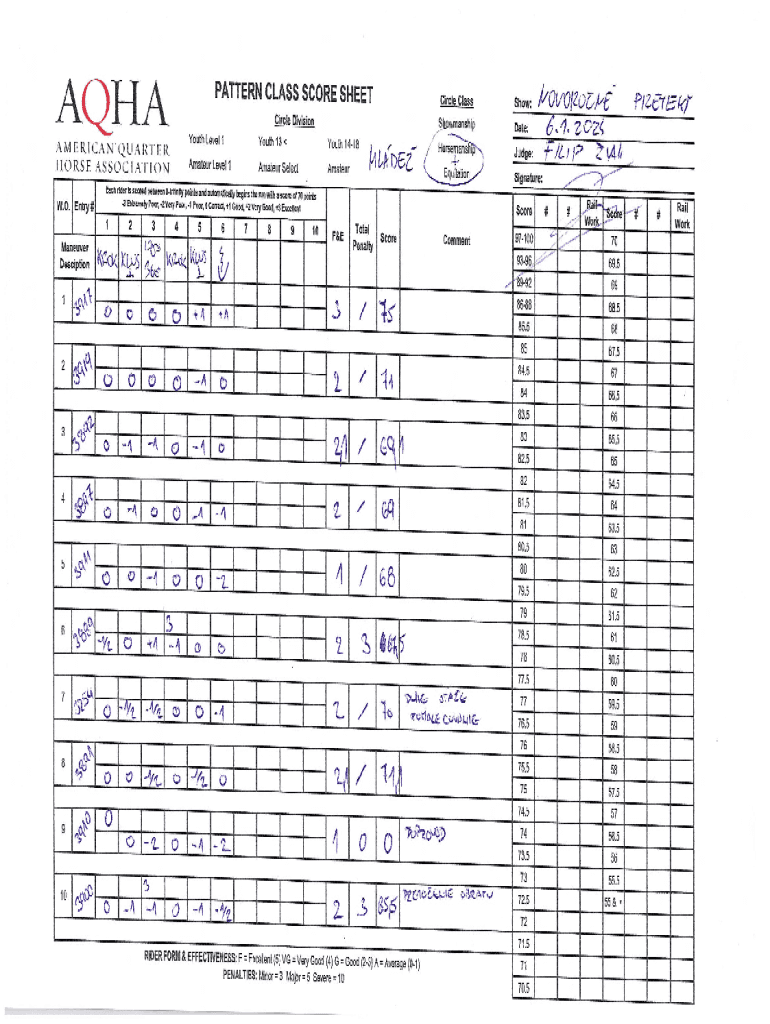 AQHA
AMERICAN QUARTER
HORSE ASSOCIATION
PATTERN CLASS SCORE SHEET
Circle Division
Youth Level 1 Youth 13 < Youth 14-18
Amateur Level 1 Amateur Select Amateur
MLÁDEŽ
Circle Class
Showmanship
Horsemanship
+
Equitation
Show: NOVOROČNÉ PRETEKY
Date: 6.1.2025
Judge: FILIP
Signature:
W.O. Entry # Each rider is scored between 0-infinity points and automatically begins the run with a score of 70 points
-3 Extremely Poor, -2 Very Poor, -1 Poor, 0 Correct, +1 Good, +2 Very Good, +3 Excellent
1 2 3 4 5 6 7 8 9 10 F&E Total Penalty Score Comment
Maneuver Description KROK KLUS KROK KLUS
1 3917 0 0 0 0 +1 +1 3 / 75
2 3919 0 0 0 0 -1 0 2 / 71
3 3892 0 -1 -1 0 -1 0 2,1 / 69,1
4 3897 0 -1 0 0 -1 -1 2 / 69
5 3911 0 0 -1 0 0 -2 1 / 68
3
6 3889 -1/2 0 +1 -1 0 0 2 3 67,5
7 3254 0 -1/2 -1/2 0 0 -1 2 / 70
8 3891 0 0 -1/2 0 -1/2 0 2,1 / 71,1
0
9 3910 0 -2 0 -1 -2 1 0 0
3
10 3900 0 -1 -1 0 -1 -1/2 2 3 65,5 PRETOČENIE OBRATU
RIDER FORM & EFFECTIVENESS: F = Excellent (5) VG = Very Good (4) G = Good (2-3) A = Average (0-1)
PENALTIES: Minor = 3 Major = 5 Severe = 10
Score # # Rail Work Score # # Rail Work
97-100 70
93-96 69.5
89-92 69
86-88 68.5
85.5 68
85 67.5
84.5 67
84 66.5
83.5 66
83 65.5
82.5 65
82 64.5
81.5 64
81 63.5
80.5 63
80 62.5
79.5 62
79 61.5
78.5 61
78 60.5
77.5 60
77 59.5
76.5 59
76 58.5
75.5 58
75 57.5
74.5 57
74 56.5
73.5 56
73 55.5
72.5 55 & <
72
71.5
71
70.5